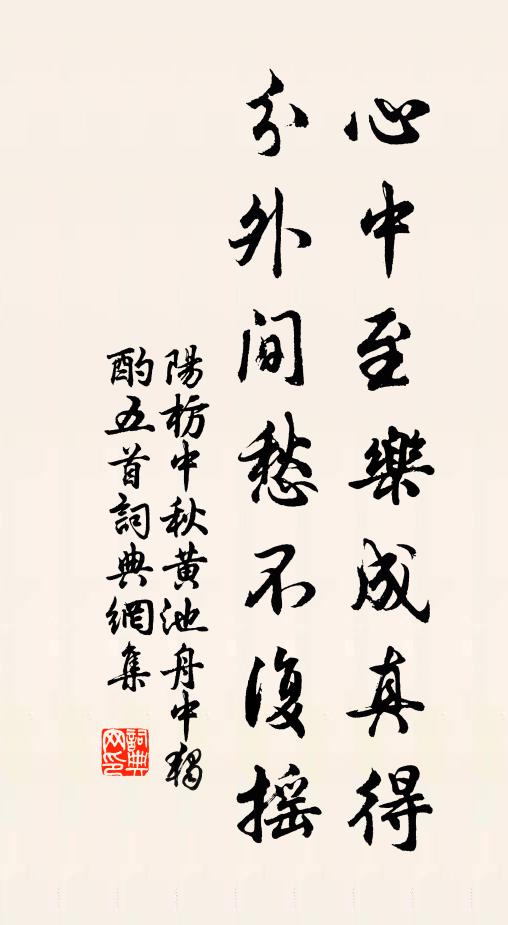 心中至樂成真得
分外閒愁不復搖
陽枋中秋黄池舟中獨
酌五首詞典網集
詞典
网印